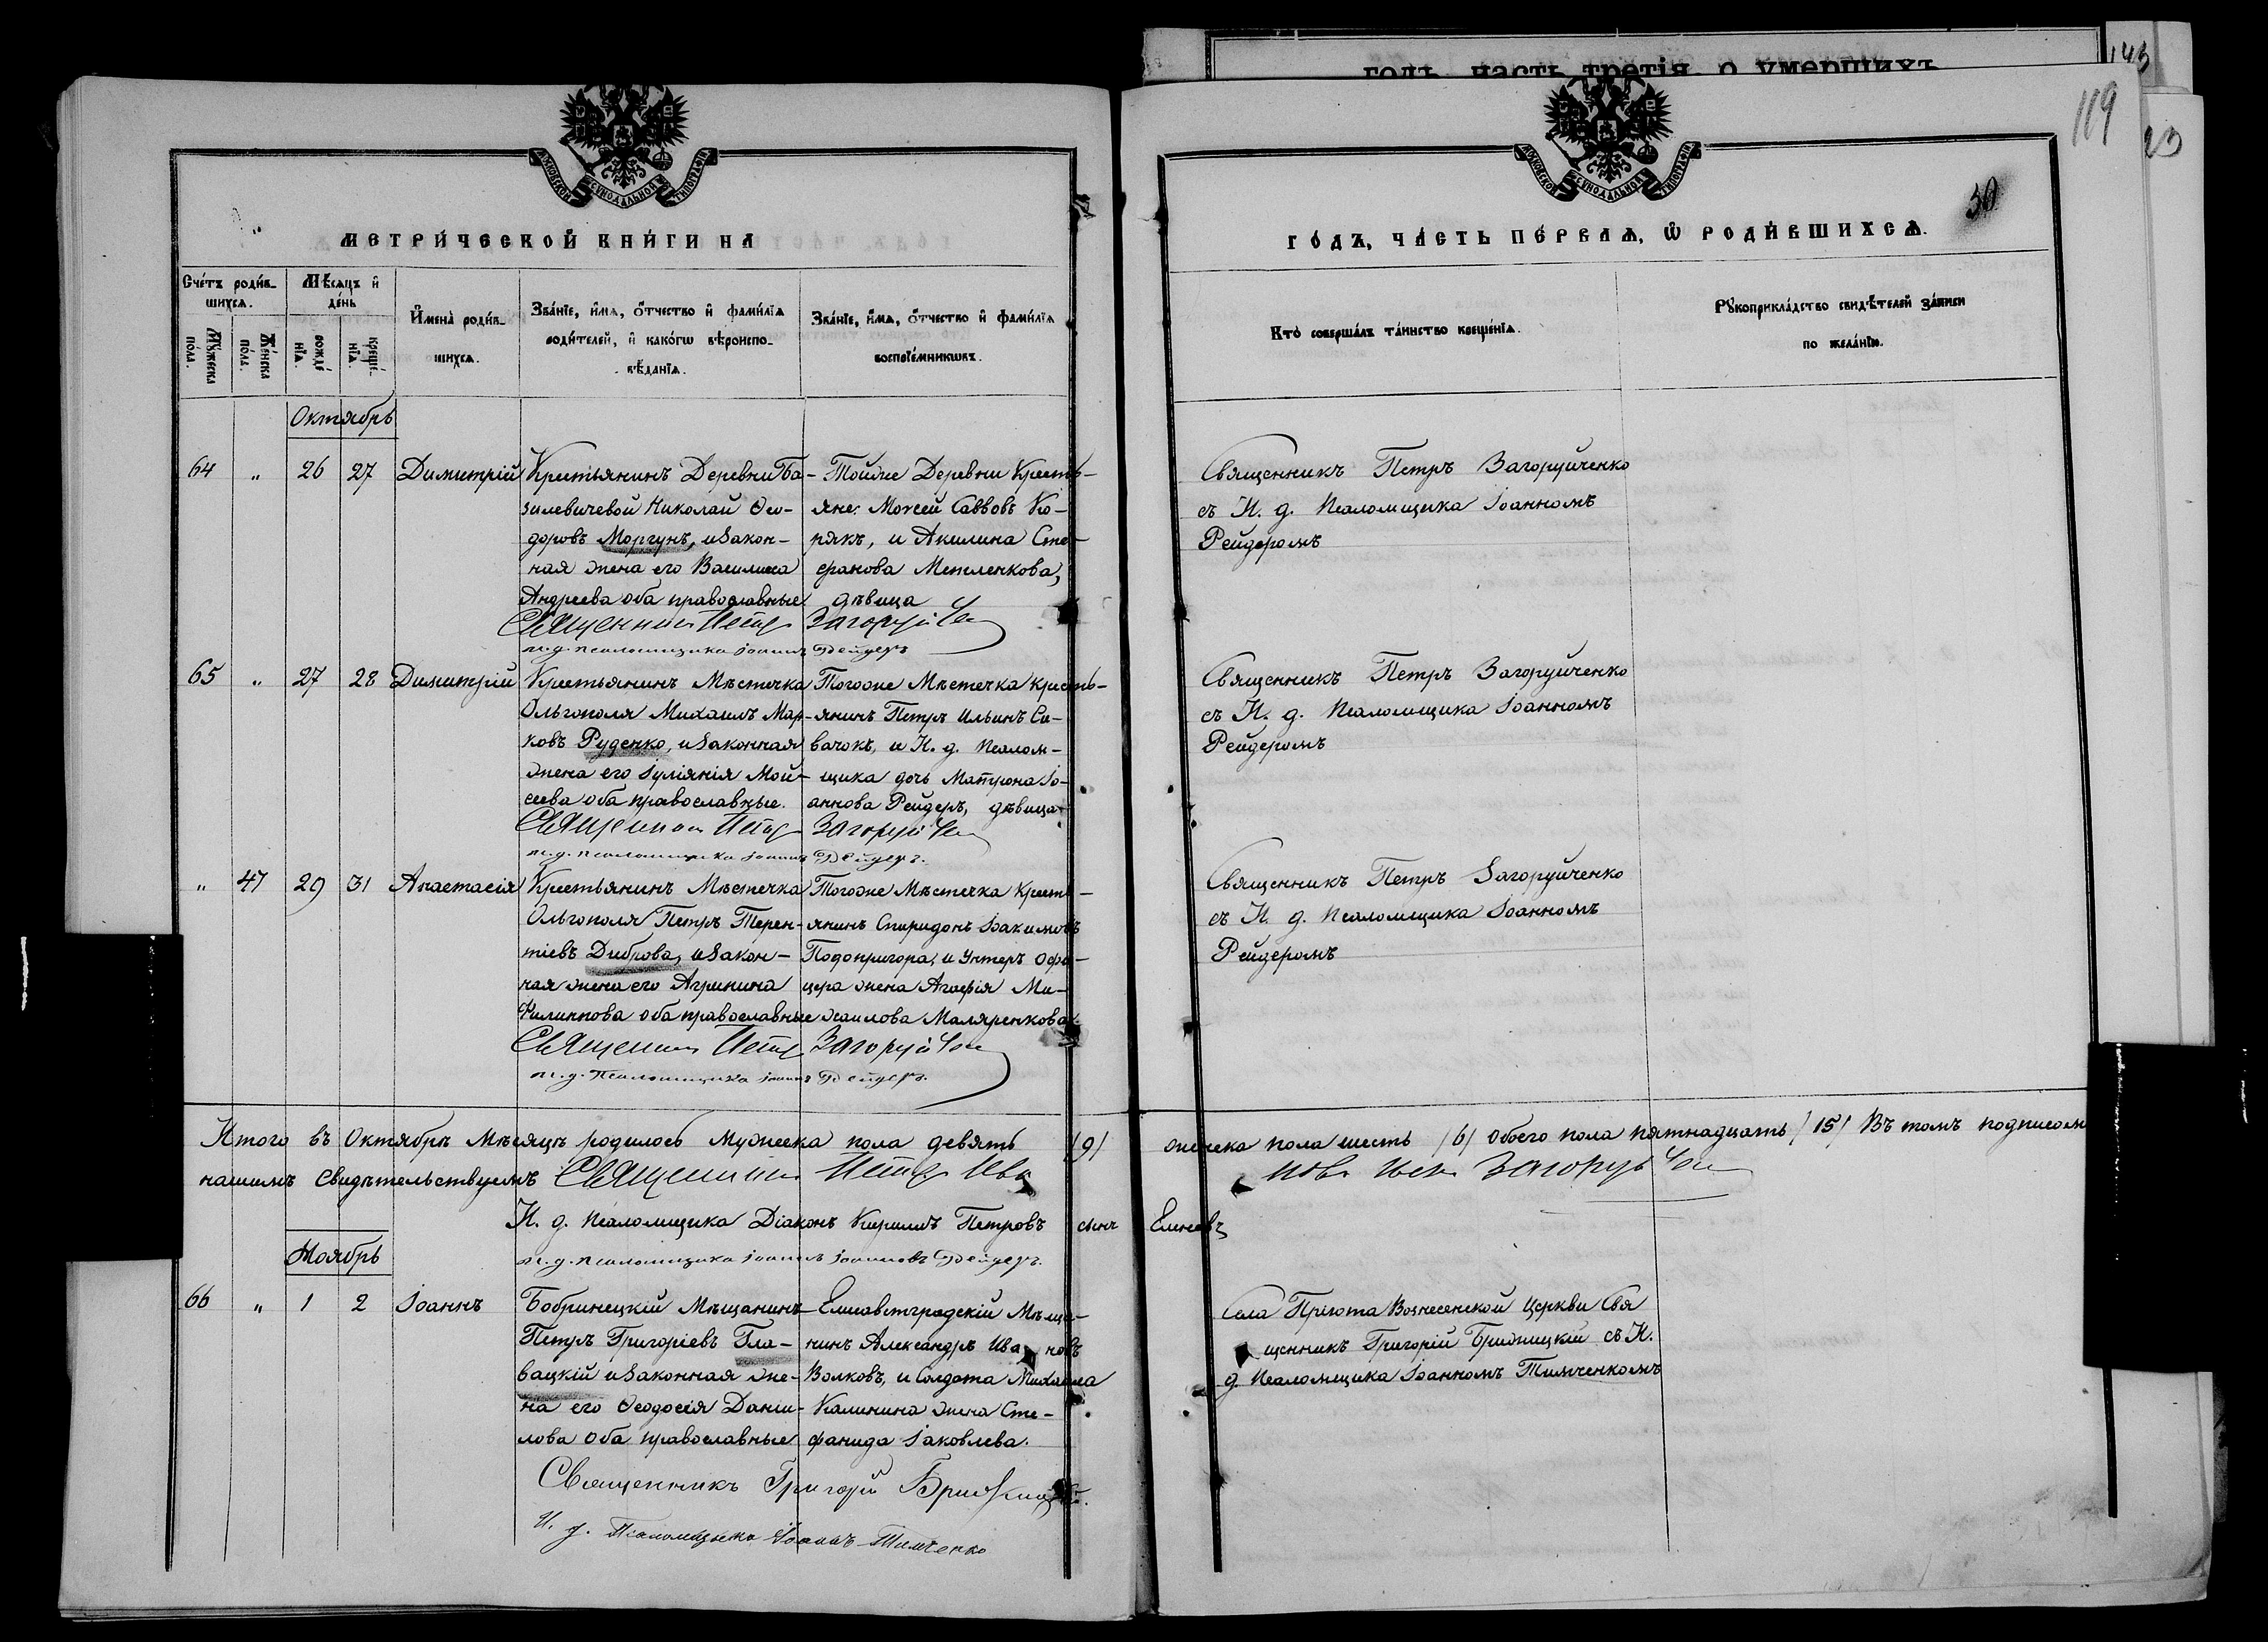 годъ, часть третія, о умершихъ
143
119
23
30
МОСКОВСКОЙ СѴНОДАЛЬНОЙ ТИПОГРАФІИ
МОСКОВСКОЙ СѴНОДАЛЬНОЙ ТИПОГРАФІИ
МЕТРИ́ЧЕСКОЙ КНИ́ГИ НА
ГО́ДЪ, ЧА́СТЬ ПЕ́РВАѦ, Ѡ҆ РОДИ́ВШИХСѦ.
Сче́тъ роди́в-
шихсѧ.
Мꙋ́жеска по́ла.
Же́нска по́ла.
Мѣ́сѧцъ и҆ де́нь
рождє́нїѧ.
креще́нїѧ.
И҆мена̀ роди́в-
шихсѧ.
Зва́нїе, и҆́мѧ, ѻ҆́тчество и҆ фами́лїѧ
роди́телей, и҆ како́гѡ вѣроиспо-
вѣ́данїѧ.
Зва́нїе, и҆́мѧ, ѻ҆́тчество и҆ фами́лїѧ
воспрїе́мникѡвъ.
Кто̀ соверша́лъ та́инство креще́нїѧ.
Рꙋкоприкла́дство свидѣ́телей за́писи
по жела́нїю.
Октябрь
64 " 26 27 Димитрій
Крестьянинъ Деревни Ба-
зилевичевой Николай Ѳео-
доровъ Моргунъ, и закон-
ная жена его Василиса
Андреева оба православные
Тойже Деревни Кресть-
яне: Моисей Саввовъ Ко-
рякъ, и Акилина Сте-
фанова Метленкова,
дѣвица
Священникъ Петръ Загоруйченко
съ И. д. Псаломщика Іоанномъ
Рейдеромъ
Священникъ Петръ Загоруйчен
и. д. псаломщика Іоаннъ Рейдеръ
65 " 27 28 Димитрій
Крестьянинъ Мѣстечка
Ольгополя Михаилъ Мар-
ковъ Руденко, и законная
жена его Іуліянія Мой-
сеева оба православные.
Тогоже Мѣстечка кресть-
янинъ Петръ Ильинъ Си-
вачокъ, и И. д. Псалом-
щика дочь Матрона Іо-
аннова Рейдеръ, дѣвица
Священникъ Петръ Загоруйченко
съ И. д. Псаломщика Іоанномъ
Рейдеромъ
Священникъ Петръ Загоруйчен
и. д. псаломщика Іоаннъ Рейдеръ.
" 47 29 31 Анастасія
Крестьянинъ Мѣстечка
Ольгополя Петръ Терен-
тіевъ Диброва, и закон-
ная жена его Агрипина
Филиппова оба православные
Тогоже Мѣстечка кресть-
янинъ Спиридонъ Іоакимовъ
Подопригора, и Унтеръ офи-
цера жена Агафія Ми-
хаилова Маляренкова.
Священникъ Петръ Загоруйченко
съ И. д. Псаломщика Іоанномъ
Рейдеромъ
Священникъ Петръ Загоруйчен
и. д. Псаломщика Іоаннъ Рейдеръ.
Итого въ Октябрѣ Мѣсяцѣ родилось Мужеска пола девять /9/ женска пола шесть /6/ обоего пола пятнадцать /15/ Въ томъ подписомъ
нашимъ Свидѣтельствуемъ Священникъ Петръ Ива новъ сынъ Загоруйчен
И. д. Псаломщика Діаконъ Кириллъ Петровъ сынъ Елнеевъ
и. д. псаломщика Іоаннъ Іоанновъ Рейдеръ.
Ноябрь
66 " 1 2 Іоаннъ
Бобринецкій Мѣщанинъ
Петръ Григоріевъ Гла-
вацкій и законная же-
на его Ѳеодосія Даніи-
лова оба православные
Елисаветградскій Мѣща-
нинъ Александръ Ивановъ
Волковъ, и Солдата Михаила
Калинина жена Сте-
фанида Іаковлева.
Села Пріюта Вознесенской Церкви Свя
щенникъ Григорій Брижицкій съ И.
д. Псаломщика Іоанномъ Тимченкомъ
Священникъ Григорій Брижицкій.
И. д. Псаломщика Іоаннъ Тимченко